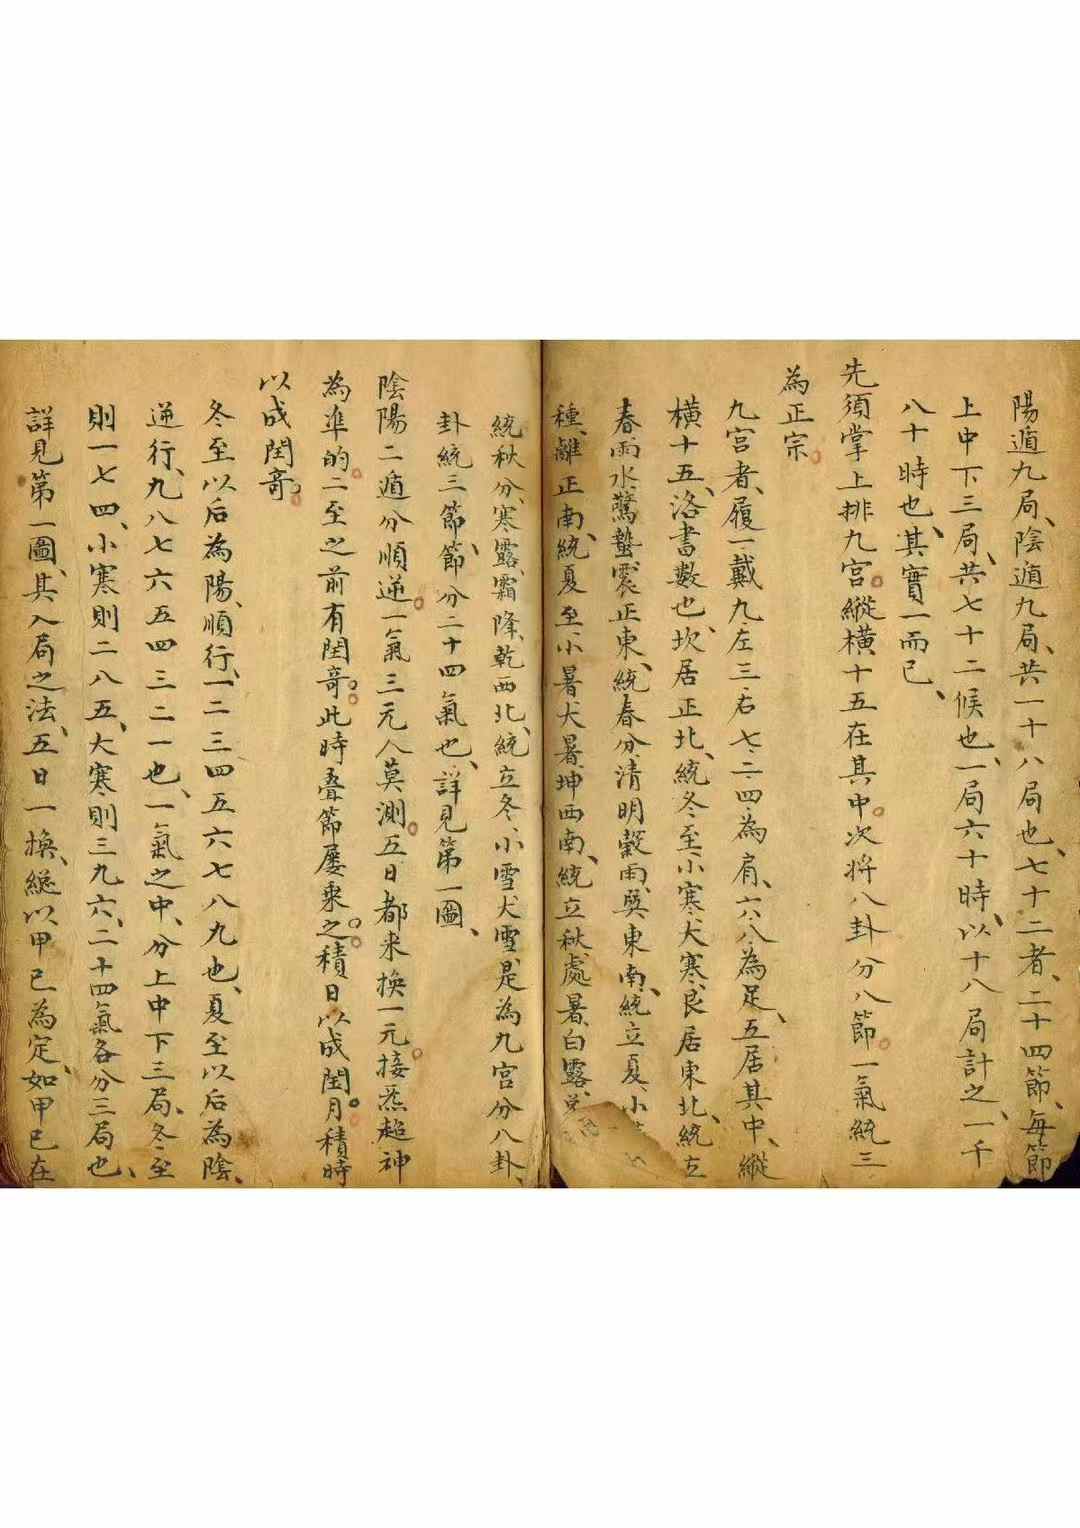 陽遁九局、陰遁九局、共一十八局也、七十二者、二十四節、每節
上中下三局、共七十二候也、一局六十時、以十八局計之、一千
八十時也、其實一而已、
先須掌上排九宮。縱橫十五在其中。次将八卦分八節。一氣統三
為正宗。
九宮者、履一戴九、左三右七、二四為肩、六八為足、五居其中、縱
橫十五、洛書數也、坎居正北、統冬至小寒大寒、艮居東北、統立
春雨水驚蟄、震正東、統春分清明穀雨、巽東南、統立夏、小
種、離正南、統夏至小暑大暑、坤西南、統立秋處暑白露、兌
統秋分、寒露、霜降、乾西北、統立冬、小雪大雪、是為九宮分八卦、
卦統三節、節分二十四氣也、詳見第一圖、
陰陽二遁分順逆。一氣三元人莫測。五日都來換一元。接炁超神
為準的。二至之前有閏竒。此時叠節屢乘之。積日以成閏月。積時
以成閏竒。
冬至以后為陽、順行、一二三四五六七八九也、夏至以后為陰、
逆行、九八七六五四三二一也、一氣之中、分上中下三局、冬至
則一七四、小寒則二八五、大寒則三九六、二十四氣各分三局也、
詳見第一圖、其入局之法、五日一換、縂以甲己為定、如甲己在